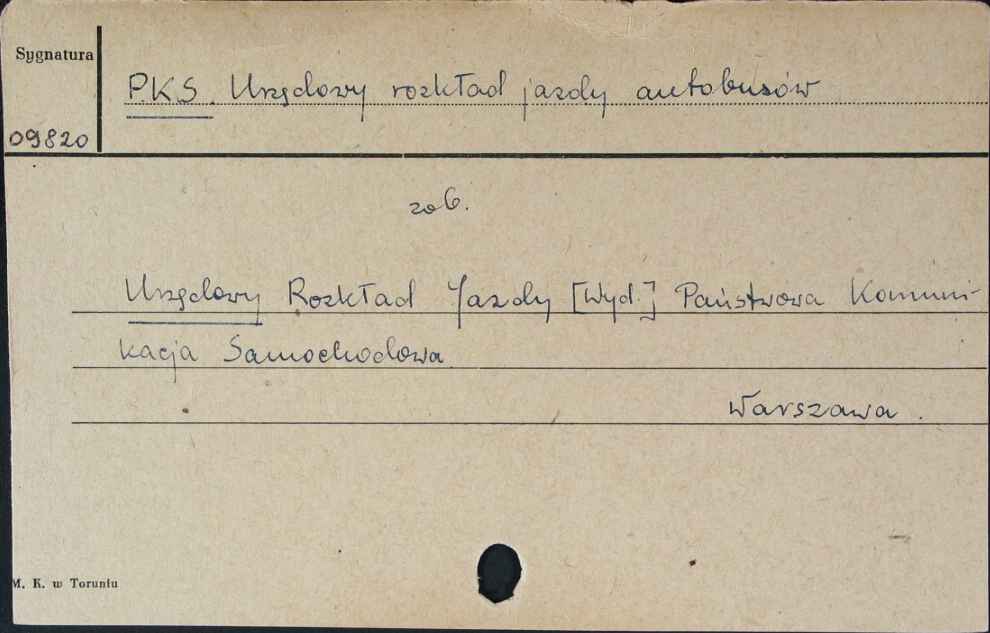 Sygnatura
P.K.S. Urzędowy rozkład jazdy autobusów
09820
zob.
Urzędowy Rozkład Jazdy [Wyd.] Państwowa Komuni-
kacja Samochodowa
Warszawa.
M. K. w Toruniu